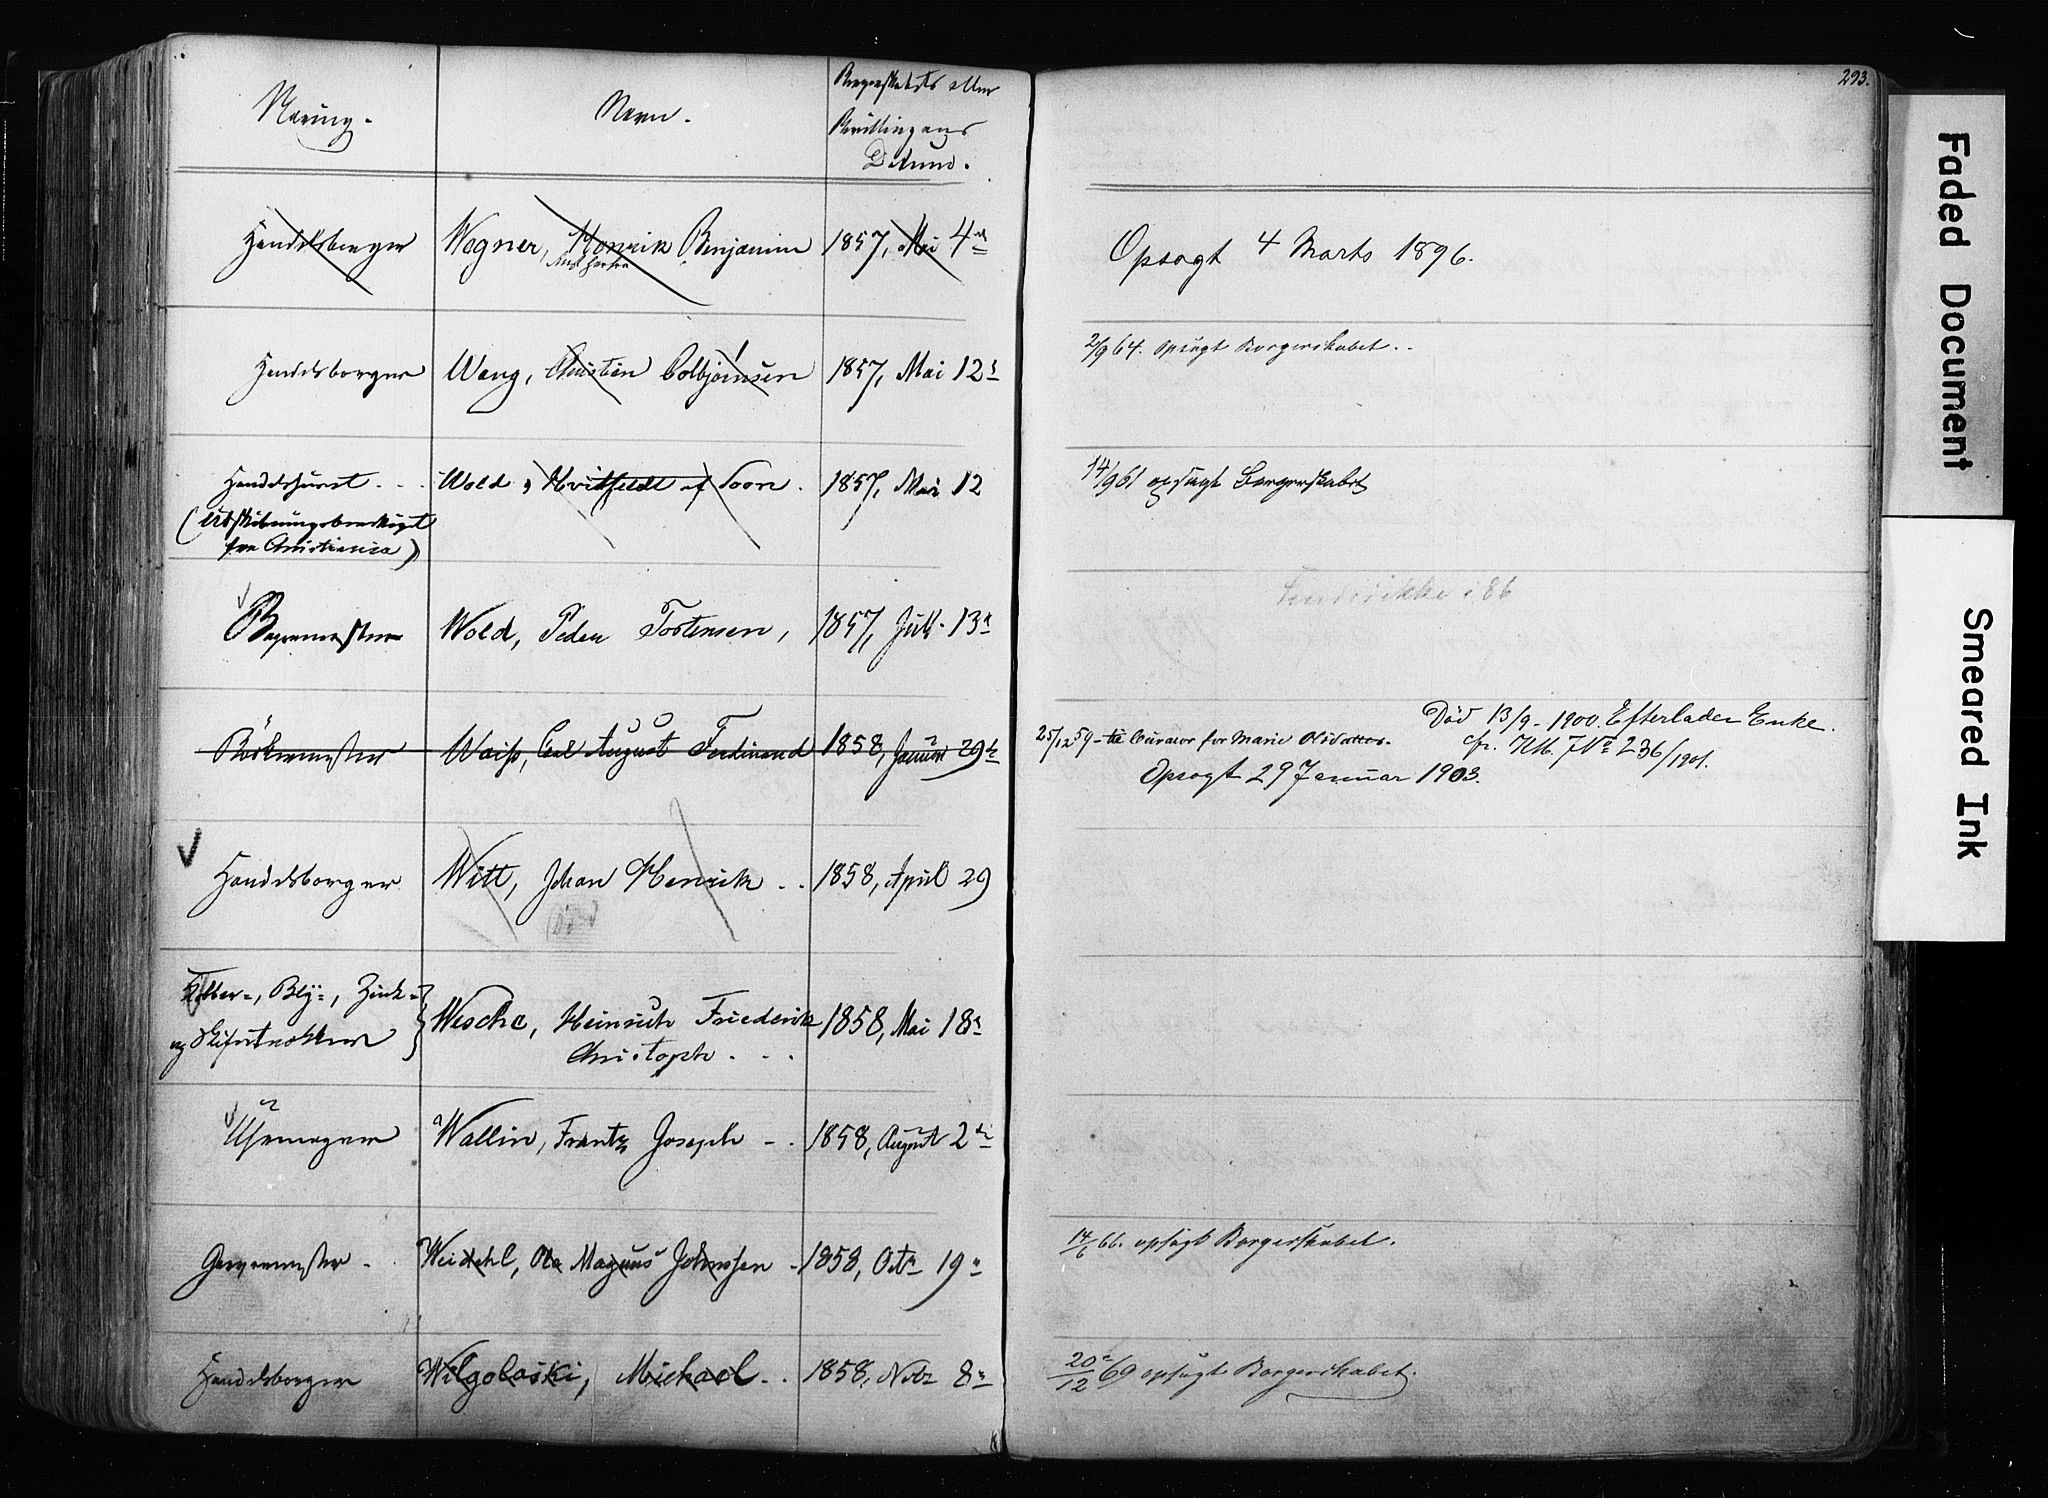 293.
Næring.
Navn.
Borgerskabets eller
Bevillingens
Datum.
Handelsborger
Wegner, Henrik Benjamin
1857, Mai 4de
Opsagt 4 Marts 1896.
Handelsborger
Wang, Christian Colbjørnsen
1857, Mai 12
2/9 64. opsagt Borgerskabet.
Wold, Hvitfeldt af Soon.
1857, Mai 12
14/9 61 opsagt Borgerskabet
(
fra Christiania)
Bagermester
Wold, Peder Tostensen,
1857, Juli 13
i 86
Bøkkermester
Waiss, Carl August Ferdinand
1858, Januar 29de
25/12 59 - til Curator for Marie
Død 13/9 - 1900. Efterlader Enke.
cfr. No 236/1901.
Opsagt 29 Januar 1903.
Handelsborger
Witt, Johan Henrik ..
1858, April 29
død
Kobber-, Bly-, Zink-
og Skifertækker
Wesche, Heinrich Friederik
Christoph . . .
1858, Mai 18
Uhrmager
Wallin, Frantz Joseph - .
1858, August 2de
Garvermester -
Weidahl, Ole Magnus Johnssen -
1858, Octr 19
14/6 66. opsagt Borgerskabet.
Handelsborger
Wilgolaski, Michael . .
1858, Novbr 8
20/12 69 opsagt Borgerskabet.
Faded Document
Smeared Ink